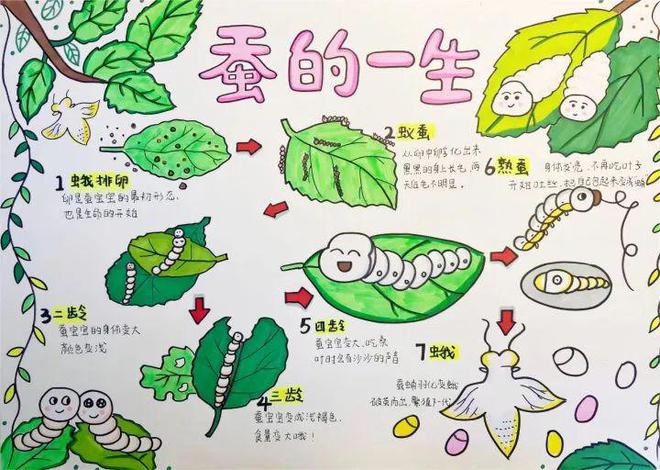 蚕的一生
1 蛾排卵
卵是蚕宝宝的最初形态,
也是生命的开始
2 蚁蚕
从卵中孵化出来
黑黑的身上长毛,两
天后毛不明显。
3 二龄
蚕宝宝的身体变大
颜色变浅
4 三龄
蚕宝宝变成浅褐色,
食量变大哦!
5 四龄
蚕宝宝变大,吃桑
叶时会有沙沙的声音
6 熟蚕
身体发亮,不再吃叶子
开始吐丝,把自己包起来变成蛹
7 蛾
蚕蛹羽化变蛾
破茧而出,繁殖下一代